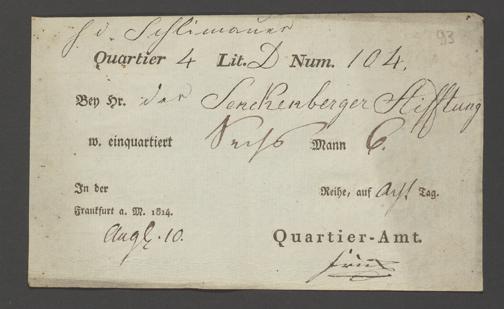 h. d. Schlimauer
93
Quartier 4 Lit. D Num. 104.
Bey Hr. der Senckenberger Stifftung
w. einquartiert Sechs Mann 6.
In der Reihe, auf acht Tag.
Frankfurt a. M. 1814.
Aug. 10.
Quartier-Amt.